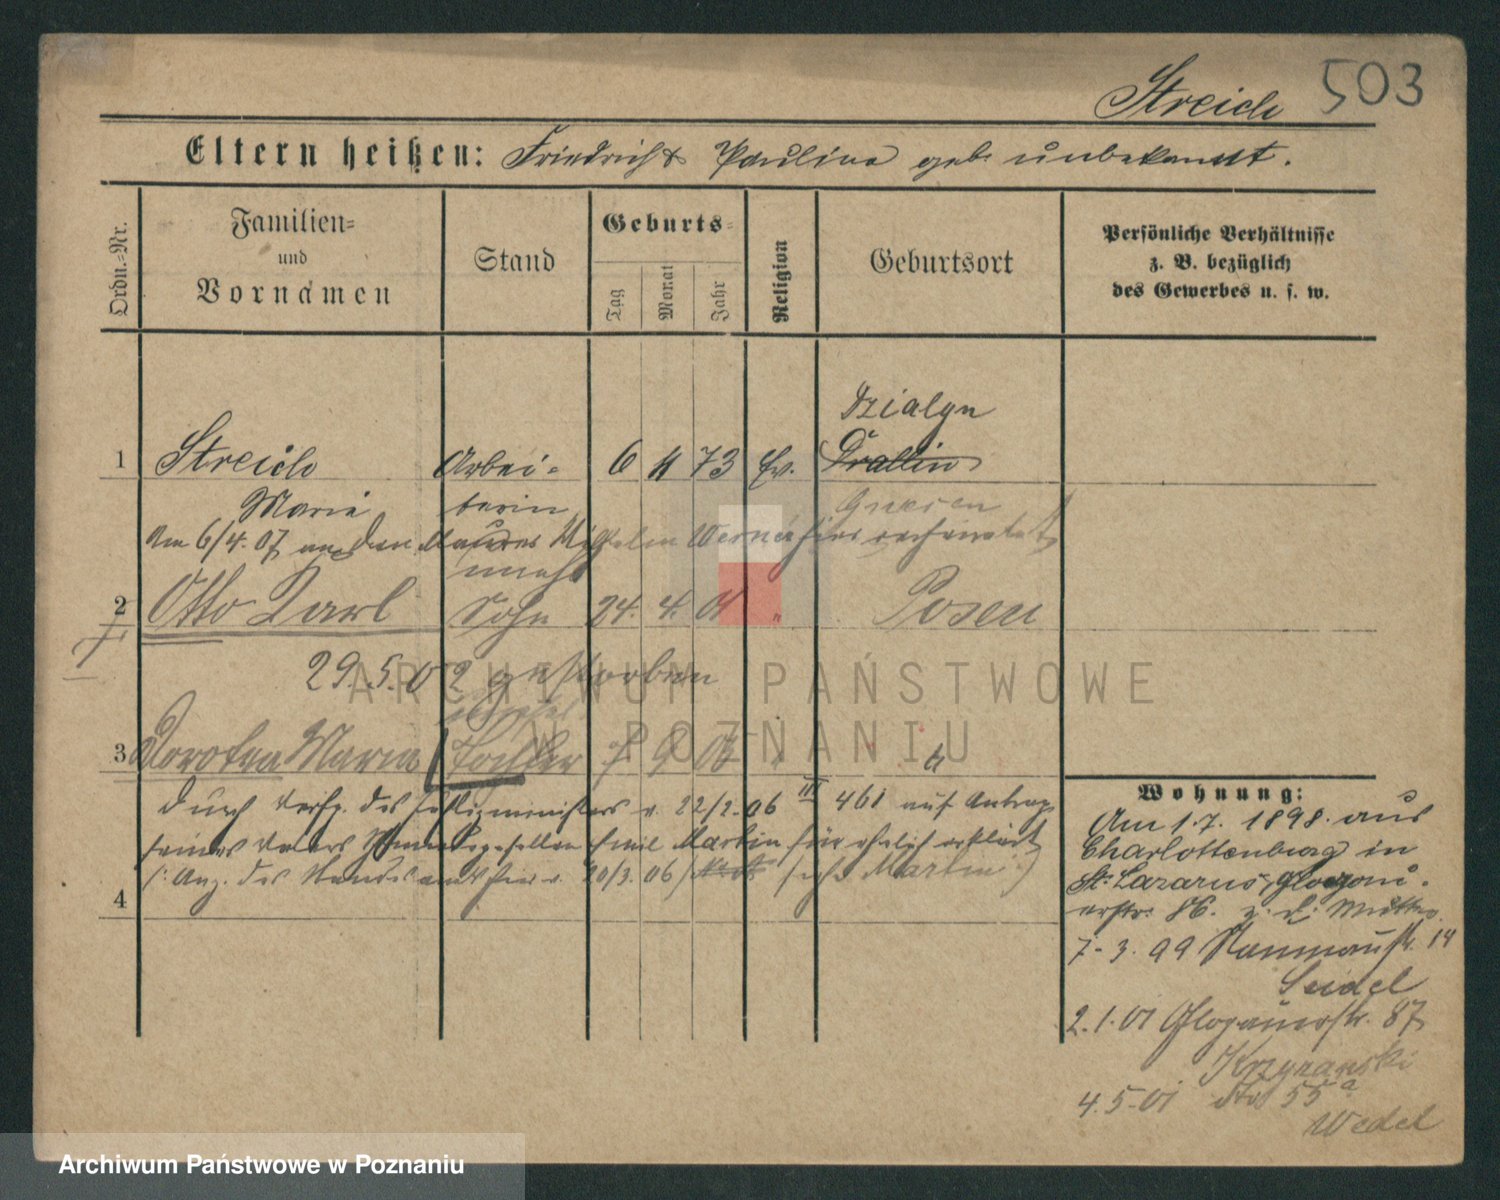 Streich 503
Eltern heißen: Friedrich & Pauline geb. unbekannt.
Ordn.-Nr.
Familien-
und
Vornamen
Stand
Geburts-
Tag
Monat
Jahr
Religion
Geburtsort
Persönliche Verhältnisse
z. B. bezüglich
des Gewerbes u. s. w.
Dzialyn
1 Streich Arbei- 6 11 73 Ev. Drallin
Maria terin Gnesen
Am 6/4.07 an den Maurer Wilhelm Werner hier verheiratet
unehl
2 Otto Karl Sohn 24. 4. 01 " Posen
29.5.02 gestorben
3 Dorothea Maria Tochter 7 9 03 "
durch Verfg. des Justizministers v. 22/2.06 III 461 auf Antrag
seines Vaters Emil Martin für ehelich erklärt
(: Anz. des Standesamts hier v. 20/3.06 / siehe Martin :)
4
Wohnung:
Am 1.7. 1898. aus
Charlottenburg in
St. Lazarus, Glogau-
erstr. 86. z. d. Mutter.
7-3.99 Naumannstr. 14
Seidel
2.1.01 Glogauerstr. 87
Krzyzanski
4.5.01 dto 55a
Wedel
ARCHIWUM PAŃSTWOWE
W POZNANIU
Archiwum Państwowe w Poznaniu